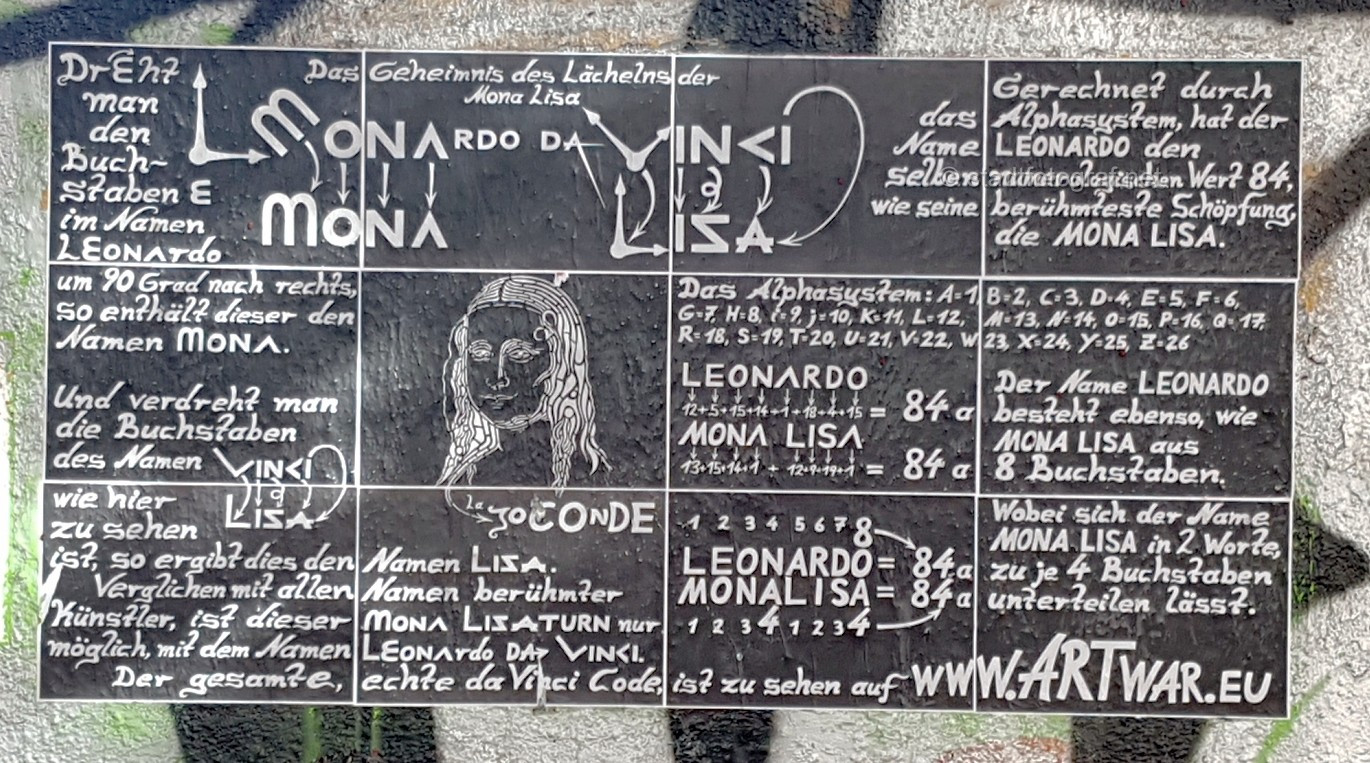 Das Geheimnis des Lächelns der
Mona Lisa
DrEht
man
den
Buch-
staben E
im Namen
LEONArdo
um 90 Grad nach rechts,
so enthält dieser den
Namen MONA.
MONARDO DA VINCI
MONA LISA
das
Name
selben
wie seine
Gerechnet durch
Alphasystem, hat der
LEONARDO den
Wert 84,
berühmteste Schöpfung,
die MONA LISA.
Und verdreht man
die Buchstaben
des Namen VINCI
LISA
wie hier
zu sehen
ist, so ergibt dies den Namen LISA.
Verglichen mit allen Namen berühmter
Künstler, ist dieser MONA LISATURN nur
möglich, mit dem Namen LEONArdo DA VINCI.
La JOCONDE
Das Alphasystem: A=1 B=2, C=3, D=4, E=5, F=6,
G=7, H=8, i=9, j=10, K=11, L=12, M=13, N=14, O=15, P=16, Q=17,
R=18, S=19, T=20, U=21, V=22, W 23, X=24, Y=25, Z=26
LEONARDO
12+5+15+14+1+18+4+15 = 84 a
MONA LISA
13+15+14+1 + 12+9+19+1 = 84 a
Der Name LEONARDO
besteht ebenso, wie
MONA LISA aus
8 Buchstaben.
1 2 3 4 5 6 7 8
LEONARDO = 84a
MONALISA = 84a
1 2 3 4 1 2 3 4
Wobei sich der Name
MONA LISA in 2 Worte,
zu je 4 Buchstaben
unterteilen lässt.
Der gesamte, echte da Vinci Code, ist zu sehen auf WWW.ARTWAR.EU